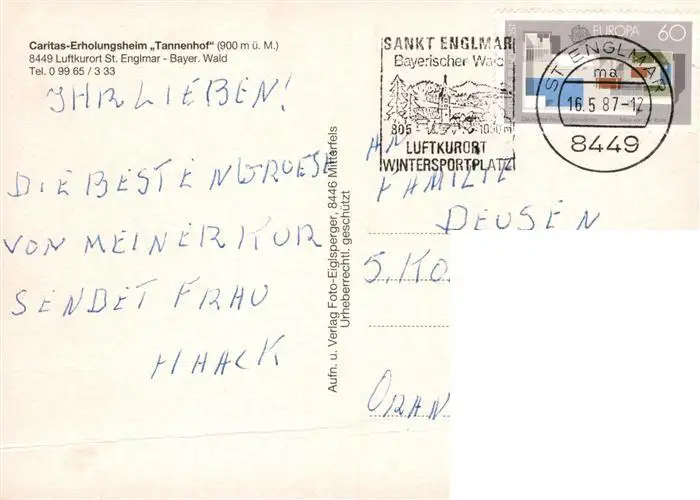 Caritas-Erholungsheim „Tannenhof" (900 m ü. M.)
8449 Luftkurort St. Englmar - Bayer. Wald
Tel. 0 99 65 / 3 33
IHR LIEBEN!
DIE BESTEN GRUESSE
VON MEINER KUR
SENDET FRAU
HAACK
Aufn. u. Verlag Foto-Eiglsperger, 8446 Mitterfels
Urheberrechtl. geschützt
SANKT ENGLMAR
Bayerischer Wald
805 - 1050 m
LUFTKURORT
WINTERSPORTPLATZ
EUROPA 60
ST. ENGLMAR
ma
16.5.87-12
8449
AN
FAMILIE
DEUSEN
S. KO
ORAN